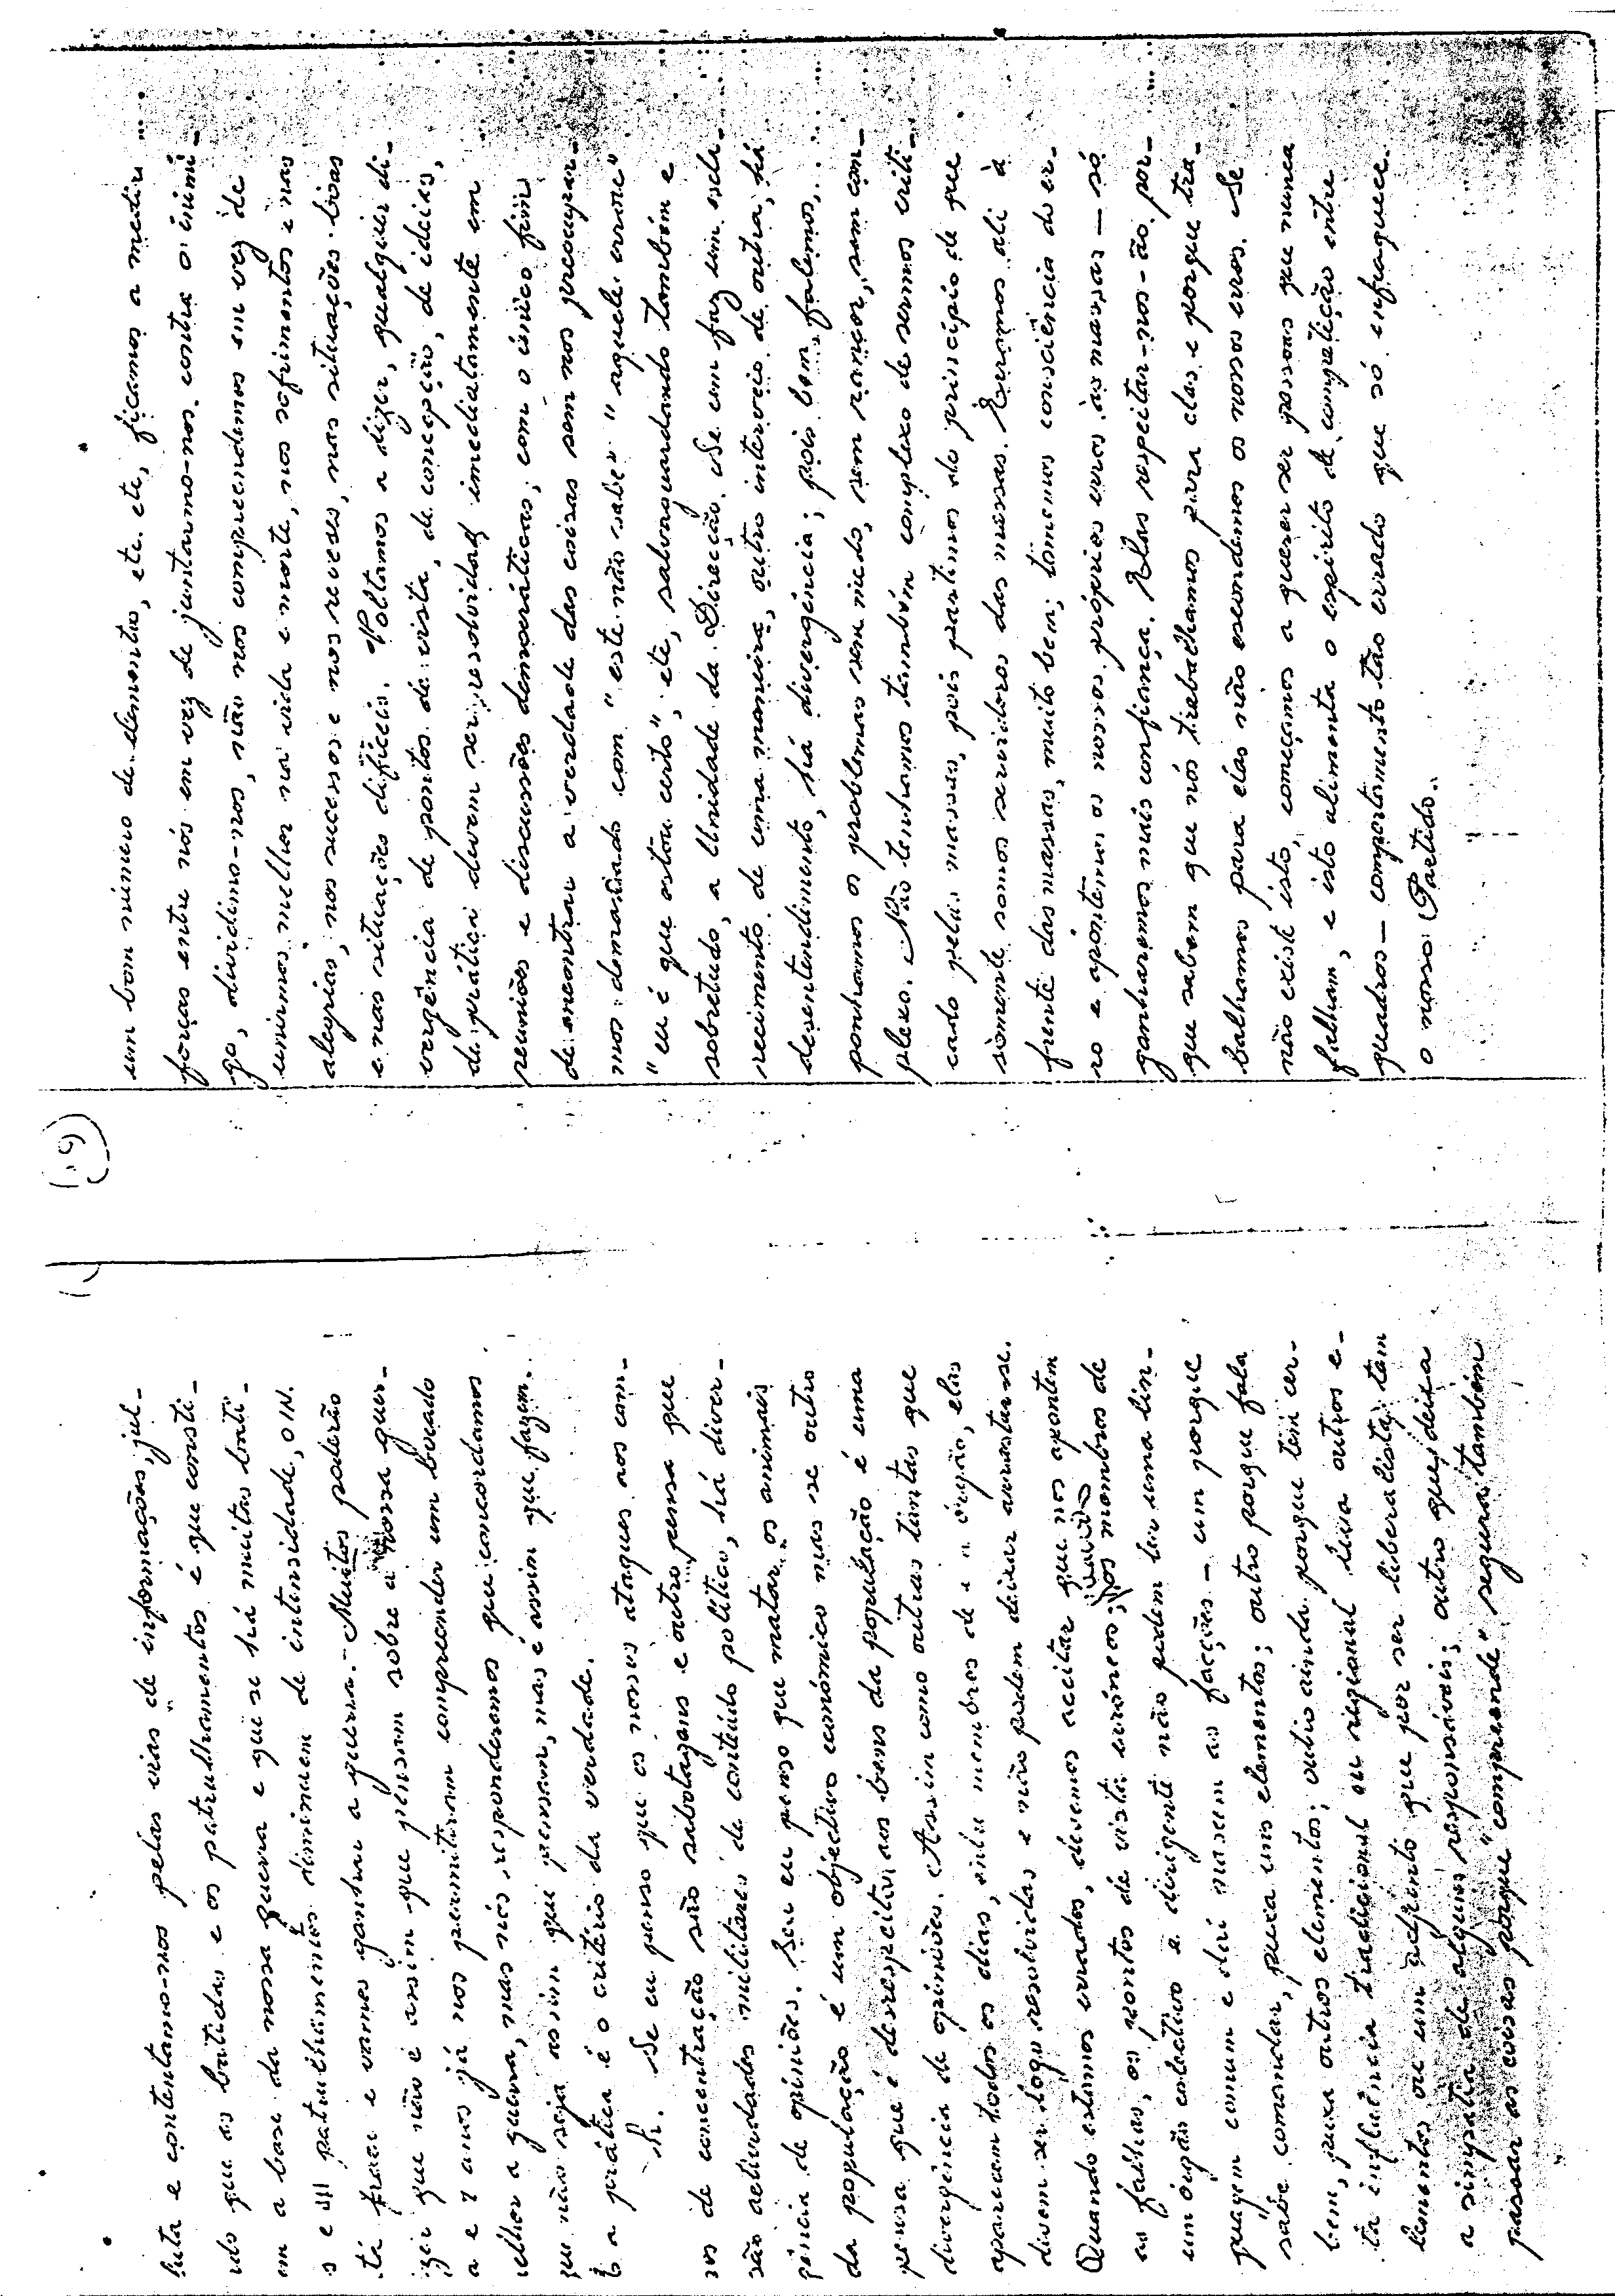 luta e contentamo-nos pelas vias de informações, jul-
ndo que as batidas e os patrulhamentos é que consti-
em a base da nossa guerra e que se há muitas bati-
s e patrulhamentos diminuem de intensidade, o IN.
tá fraco e vamos ganhar a guerra. - Muitos poderão
izer que não é assim que pensam sobre a nossa guer-
a e 7 anos já nos permitiram compreender um bocado
elhor a guerra, mas nós responderemos que concordamos
que não seja assim que pensam, mas é assim que fazem.
E a prática é o critério da verdade.
Se eu penso que os nossos ataques aos cam-
pos de concentração são sabotagens e outro pensa que
são actividades militares de conteúdo político, há diver-
gência de opiniões. Se eu penso que matar os animais
da população é um objectivo económico mas se outro
pensa que é desrespeitar aos bens da população é uma
divergência de opiniões. Assim como outras tantas que
aparecem todos os dias, entre membros de um órgão, elas
devem ser logo resolvidas e não podem deixar arrastar-se.
Quando estamos errados, devemos aceitar que nos apontem
as falhas, os pontos de vista erróneos; os membros de
um órgão colectivo e dirigente não podem ter uma lin-
guagem comum e daí nascem as facções - um porque
sabe comandar, puxa uns elementos; outro porque fala
bem, puxa outros elementos; outro ainda porque tem cer-
ta influência tradicional ou regional leva outros e-
lementos ou um adjunto que por ser liberalista, tem
a simpatia de alguns responsáveis; outro que deixa
passar as coisas porque "compreende" segura também
(19)
um bom número de elementos, etc. etc, ficamos a medir
forças entre nós em vez de juntarmo-nos contra o inimi-
go, dividimo-nos, não nos compreendemos em vez de
unirmos melhor na vida e morte, nos sofrimentos e nas
alegrias, nos sucessos e nos reveses, nas situações boas
e nas situações difíceis. Voltamos a dizer, qualquer di-
vergência de pontos de vista, de concepção, de ideias,
de prática devem ser resolvidas imediatamente em
reuniões e discussões democráticas, com o único fim
de encontrar a verdade das coisas sem nos preocupar-
mos demasiado com "este não sabe" "aquele errou"
"eu é que estou certo", etc, salvaguardando também e
sobretudo, a Unidade da Direcção. Se um faz um escla-
recimento de uma maneira, outro interveio de outra, há
desentendimento, há divergência; pois bem, falemos,
ponhamos os problemas sem medo, sem rancor, sem com-
plexo. Não tenhamos também complexo de sermos criti-
cado pelas massas, pois partimos do princípio de que
sòmente somos servidores das massas. Erramos ali à
frente das massas, muito bem; tomemos consciência do er-
ro e apontemos os nossos próprios erros às massas - só
ganharemos mais confiança. Elas respeitar-nos-ão por-
que sabem que nós trabalhamos para elas e porque tra-
balhamos para elas não escondemos os nossos erros. Se
não existe isto, começamos a querer ser pessoas que nunca
falham, e isto alimenta o espírito de competição entre
quadros - comportamento tão errado que só enfraquece
o nosso Partido.